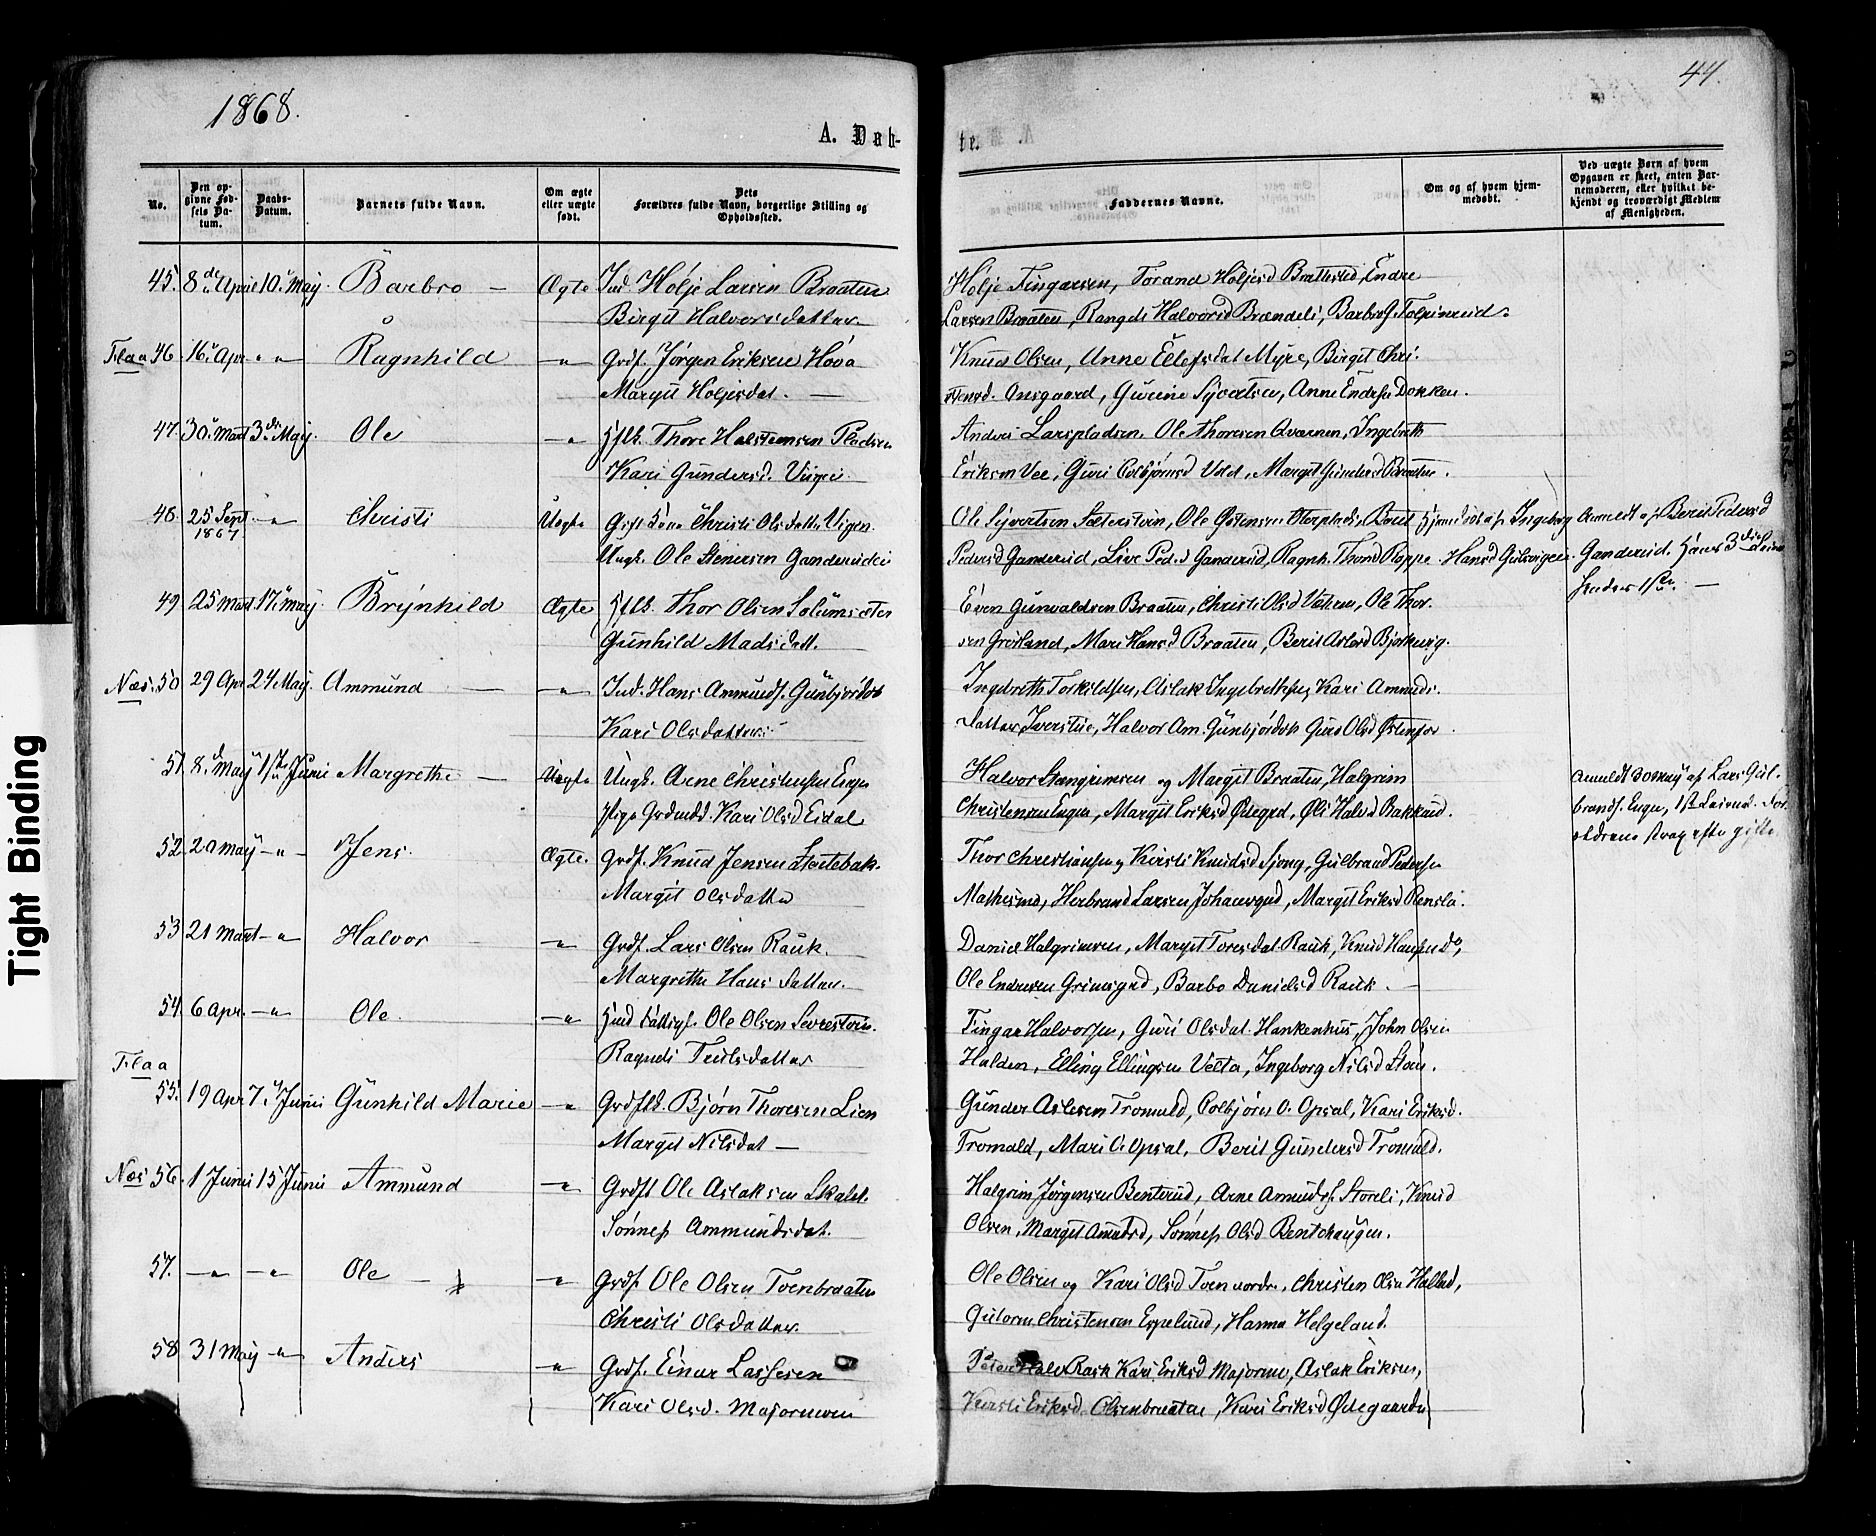 1868.
44.
A. Dab-
te.
No.
Den op-
givne Fød-
sels Da-
tum.
Daabs-
Datum.
Barnets fulde Navn.
Om ægte
eller uægte
født.
Dets
Forældres fulde Navn, borgerlige Stilling og
Opholdssted.
Faddernes Navne.
Om og af hvem hjem-
medøbt.
Ved uægte Børn af hvem
Opgaven er skeet, enten Bar-
nemoderen, eller hvilket be-
kjendt og troværdigt Medlem
af Menigheden.
45. 8de April 10. May. Barbro — Ægte Ind. Holje Larsen Braaten
Birgit Halvorsdatter
Holje Fingarsen, Torand Holjesd Brattested, Endre
Larsen Braaten, Rangdi Halvorsd Brændeli, Barbro
Flaa 46. 16. Apr. " " Ragnhild —" Grdf. Jørgen Eriksen Hova
Margit Holjesdat. —
Knud Olsen, Anne Ellefsdat Myre, Birgit Chri-
stensd. Aasgaard, Gurine Syvertsen, Anne Endresd Dokken.
47. 30. Mart 3. May. Ole —" Thore Halstensen Pladsen
Kari Gundersd. Viige
Anders Larspladsen, Ole Thoresen Qvarnen, Ingebreth
Eriksen Vee, Guri Colbjørnsd Vold, Margit Gundersd Braaten.
48. 25 Sept. —" Christi Uægte Christi Olsdatter Vigen
1867
Ungk. Ole Stenersen Ganderud
Ole Syvertsen Sæterstøin, Ole Berit
Pedersd Ganderud, Live Ped.d Ganderud, Ragnh. Thorsd Rappe.
Hjemdøbt af Ingeborg
Hansd Gulsvigeie.
Anmeldt af Berit Pedersd
Ganderud. Hans 3die Leier
hendes 1ste. —
49. 25 Mart 17. May Brynhild Ægte Thor Olsen Solumsæter
Gunhild Madsdatt.
Even Gunvaldsen Braaten, Christi Olsd Væhem, Ole Thor-
sen Grøsland, Mari Hansd Braaten, Berit Aslesd
Næs. 50. 29 Apr 24 May. Ammund — —" Ind. Hans Ammunds. Gunbjørdok
Kari Olsdatter
Ingebreth Torkildsen, Aslak Ingebrethsen, Kari Amunds-
datter Iverstue, Halvor Am. Gunbjørdok Guro Olsd
51. 8. May 1ste Junii Margrethe — Uægte Ungk. Arne Christensen Engen
Pige Kari Olsd Eidal
Halvor Stengrimsen og Margit Braaten, Halgrim
Christensen Engen, Margit Eriksd Ødegrd, Øli Halvd Bakkerud.
Anmeldt 30 May af Lars Gul-
brands. Engen, 1ste Leierm. For-
ældrene strax efter gifte.
52. 20 May —" Jens. Ægte. Grdf. Knud Jensen Stertebak.
Margit Olsdatter
Thor Christiansen, Kirsti Knudsd Sjong, Gulbrand Pedersen
Mathesmd, Herbrand Larsen, Margit Eriksd
53. 21 Mart —" Halvor —" Grdf. Lars Olsen Rauk.
Margrethe Hansdatter.
Daniel Halgrimsen, Margit Toresdat Rauk, Knud Hansen do,
Ole Endresen Grimsgrd, Barbo Danielsd Rauk. —
54. 6 Apr. —" Ole. —" Ole Olsen
Ragndi Trulsdatter
Fingar Halvorsen, Guri Olsdat. Hankenhus, John Olsen
Halden, Elling Ellingsen Velta, Ingeborg Nilsd
Flaa
55. 19 Apr. 7. Junii Gunhild Marie —" Bjørn Thoresen Lien
Margit Nilsdat —
Gunder Aslesen Tromald, Colbjørn O. Opsal, Kari Eriksd.
Tromald, Mari O. Opsal, Berit Gundersd Tromald.
Næs 56. 1 Junii 15 Junii Ammund —" Ole Aslaksen Skalst.
Sønnef Ammundsdat.
Halgrim Jørgensen Benterud, Arne Amunds. Storeli, Knud
Olsen, Margit Amundsd, Sønnef Olsd Benthaugen.
57. —" —" Ole — —" Grdf. Ole Olsen Toenbraaten
Christi Olsdatter.
Ole Olsen og Kari Olsd Toen nordre, Christen Olsen
Gutorm Christensen Espelund, Hanna Helgeland.
58 31 May —" Anders —" Grdf. Einar Lassesen
Kari Olsd. Majormoen
Rask Kari Eriksd Majormo, Aslak Eriksen,
Kirsti Eriksd. Olsenbraaten, Kari Eriksd Ødegaarden
Tight Binding